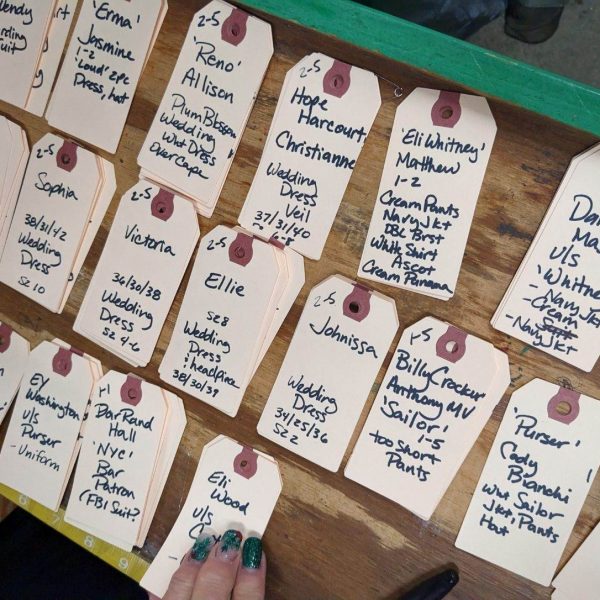 'Erma'
Jasmine
1-2
'Loud' 2pc
Dress, hat
2-5
'Reno'
Allison
Plum Blossom
Wedding
Wht Dress
Over Cape
2-5
Hope
Harcourt
Christianne
Wedding
Dress
Veil
37/31/40
'Eli Whitney'
Matthew
1-2
Cream Pants
Navy Jkt
DBL Brst
White Shirt
Ascot
Cream Panama
U/S
- Navy Jkt
- Cream
- Navy Jkt
2-5
Sophia
38/31/42
Wedding
Dress
SZ 10
2-5
Victoria
36/30/38
Wedding
Dress
SZ 4-6
2-5
Ellie
SZ 8
Wedding
Dress
& headpiece
38/30/39
2-5
Johnissa
Wedding
Dress
34/25/36
SZ 2
1-5
Billy Crocker
Anthony MV
'Sailor'
1-5
too short
Pants
'Purser'
Cody
Bianchi
Wht Sailor
Jkt, Pants
Hat
Ey
Washington
U/S
Purser
- Uniform
DarRand
Hall
'NYC'
Bar
Patron
(FBI Suit?
Eli
Wood
U/S
7
8
9